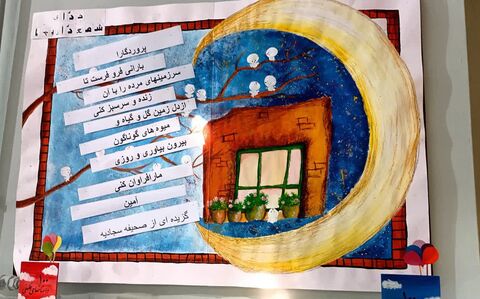 دعای
پروردگارا
بارانی فرو فرست تا
سرزمینهای مرده را با آن
زنده و سرسبز کنی
ازدل زمین گل و گیاه و
میوه های گوناگون
بیرون بیاوری و روزی
مارافراوان کنی
آمین
گزیده ای از صحیفه سجادیه